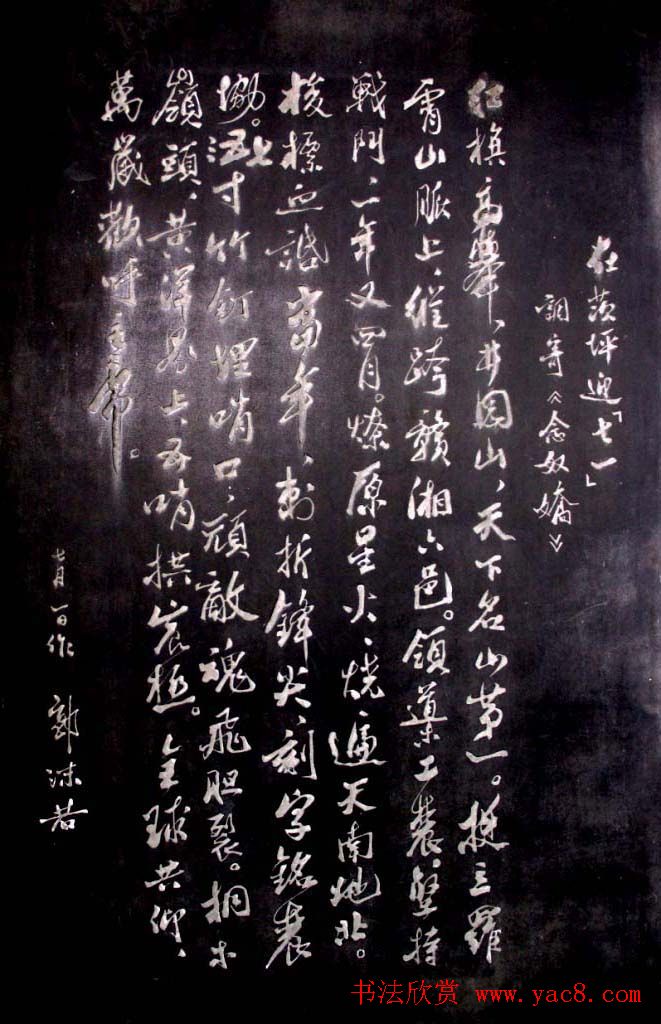 在茨坪迎「七一」
調寄《念奴嬌》
紅旗高舉、井岡山、天下名山第一。挺立羅
霄山脈上、縱跨贛湘六邑。領導工農、堅持
戰鬥、二年又四月。燎原星火、燒遍天南地北。
梭標血認當年、刺折鋒尖、刻字銘農
協。五寸竹釘埋哨口、頑敵魂飛胆裂。桐木
嶺頭、黃洋界上、五哨拱宸極。全球共仰、
萬歲歡呼主席。
七月一日作 郭沫若
书法欣赏 www.yac8.com